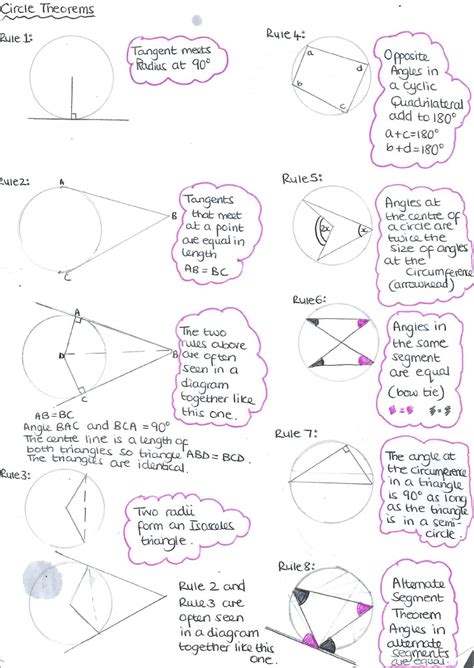 Circle Theorems
Rule 1:
Tangent meets
Radius at 90°
Rule2:
A
B
C
Tangents
that meet
at a point
are equal in
length
AB = BC
A
B
D
C
The two
rules above
are often
seen in a
diagram
together like
this one.
AB=BC
Angle BAC and BCA = 90°
The centre line is a length of
both triangles so triangle ABD = BCD.
The triangles are identical.
Rule3:
Two radii
form an Isosceles
triangle.
Rule 2 and
Rule 3 are
often seen
in a diagram
together like this
one.
Rule 4:
a
d
b
c
Opposite
Angles in
a cyclic
Quadrilateral
add to 180°
a+c=180°
b+d=180°
Rule5:
2x
x
Angles at
the centre of
a circle are
twice the
size of angles
at the
Circumference
(arrowhead)
Rule6:
Angles in
the same
segment
are equal
(bow tie)
Rule 7:
The angle at
the circumference
in a triangle
is 90° as long
as the triangle
is in a semi-
circle.
Rule8:
Alternate
Segment
Theorem
Angles in
alternate
segments
are equal.